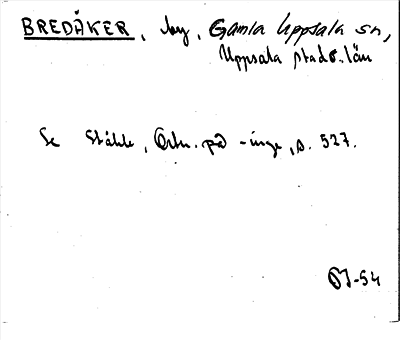 BREDÅKER, by, Gamla Uppsala sn,
Uppsala stads. län
Se Ståhle, Ortn. på -inge, s. 527.
-54